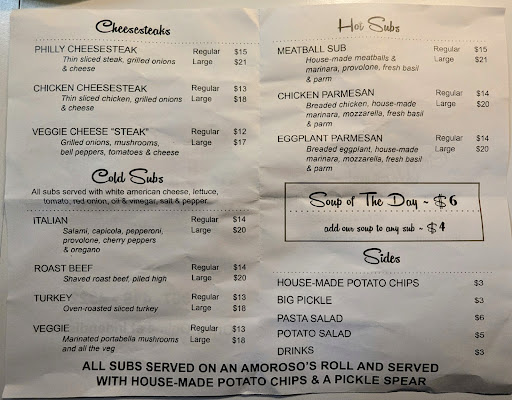 Cheesesteaks
PHILLY CHEESESTEAK Regular $15
Thin sliced steak, grilled onions Large $21
& cheese
CHICKEN CHEESESTEAK Regular $13
Thin sliced chicken, grilled onions Large $18
& cheese
VEGGIE CHEESE "STEAK" Regular $12
Grilled onions, mushrooms, Large $17
bell peppers, tomatoes & cheese
Cold Subs
All subs served with white american cheese, lettuce,
tomato, red onion, oil & vinegar, salt & pepper.
ITALIAN Regular $14
Salami, capicola, pepperoni, Large $20
provolone, cherry peppers
& oregano
ROAST BEEF Regular $14
Shaved roast beef, piled high Large $20
TURKEY Regular $13
Oven-roasted sliced turkey Large $18
VEGGIE Regular $13
Marinated portabella mushrooms Large $18
and all the veg
Hot Subs
MEATBALL SUB Regular $15
House-made meatballs & Large $21
marinara, provolone, fresh basil
& parm
CHICKEN PARMESAN Regular $14
Breaded chicken, house-made Large $20
marinara, mozzarella, fresh basil
& parm
EGGPLANT PARMESAN Regular $14
Breaded eggplant, house-made Large $20
marinara, mozzarella, fresh basil
& parm
Soup of The Day ~ $6
add our soup to any sub ~ $4
Sides
HOUSE-MADE POTATO CHIPS $3
BIG PICKLE $3
PASTA SALAD $6
POTATO SALAD $5
DRINKS $3
ALL SUBS SERVED ON AN AMOROSO'S ROLL AND SERVED
WITH HOUSE-MADE POTATO CHIPS & A PICKLE SPEAR